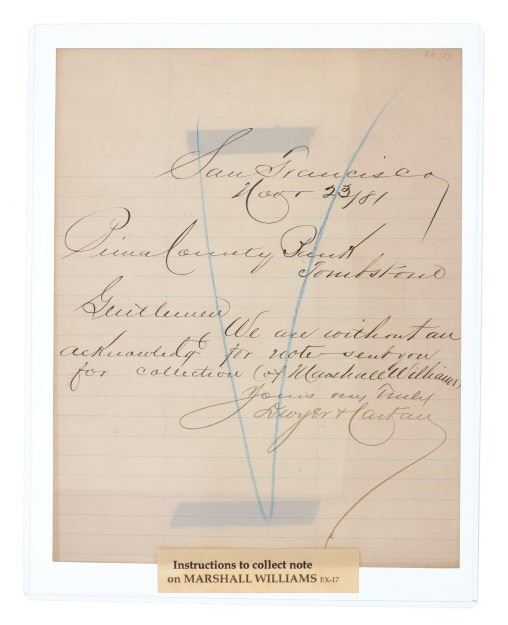 EX-17
San Francisco
Novr 23/81
Pima County Bank
Tombstone
Gentlemen
We are without an
acknowledgt for note sent you
for collection (of Marshall Williams)
Yours very Truly
Dwyer &
Instructions to collect note
on MARSHALL WILLIAMS EX-17